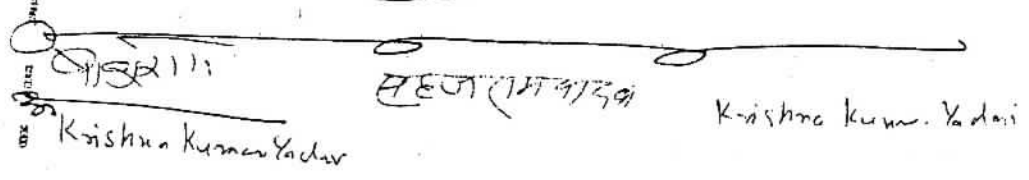 सहजराम यादव Krishna Kumar Yadav
Krishna Kumar Yadav